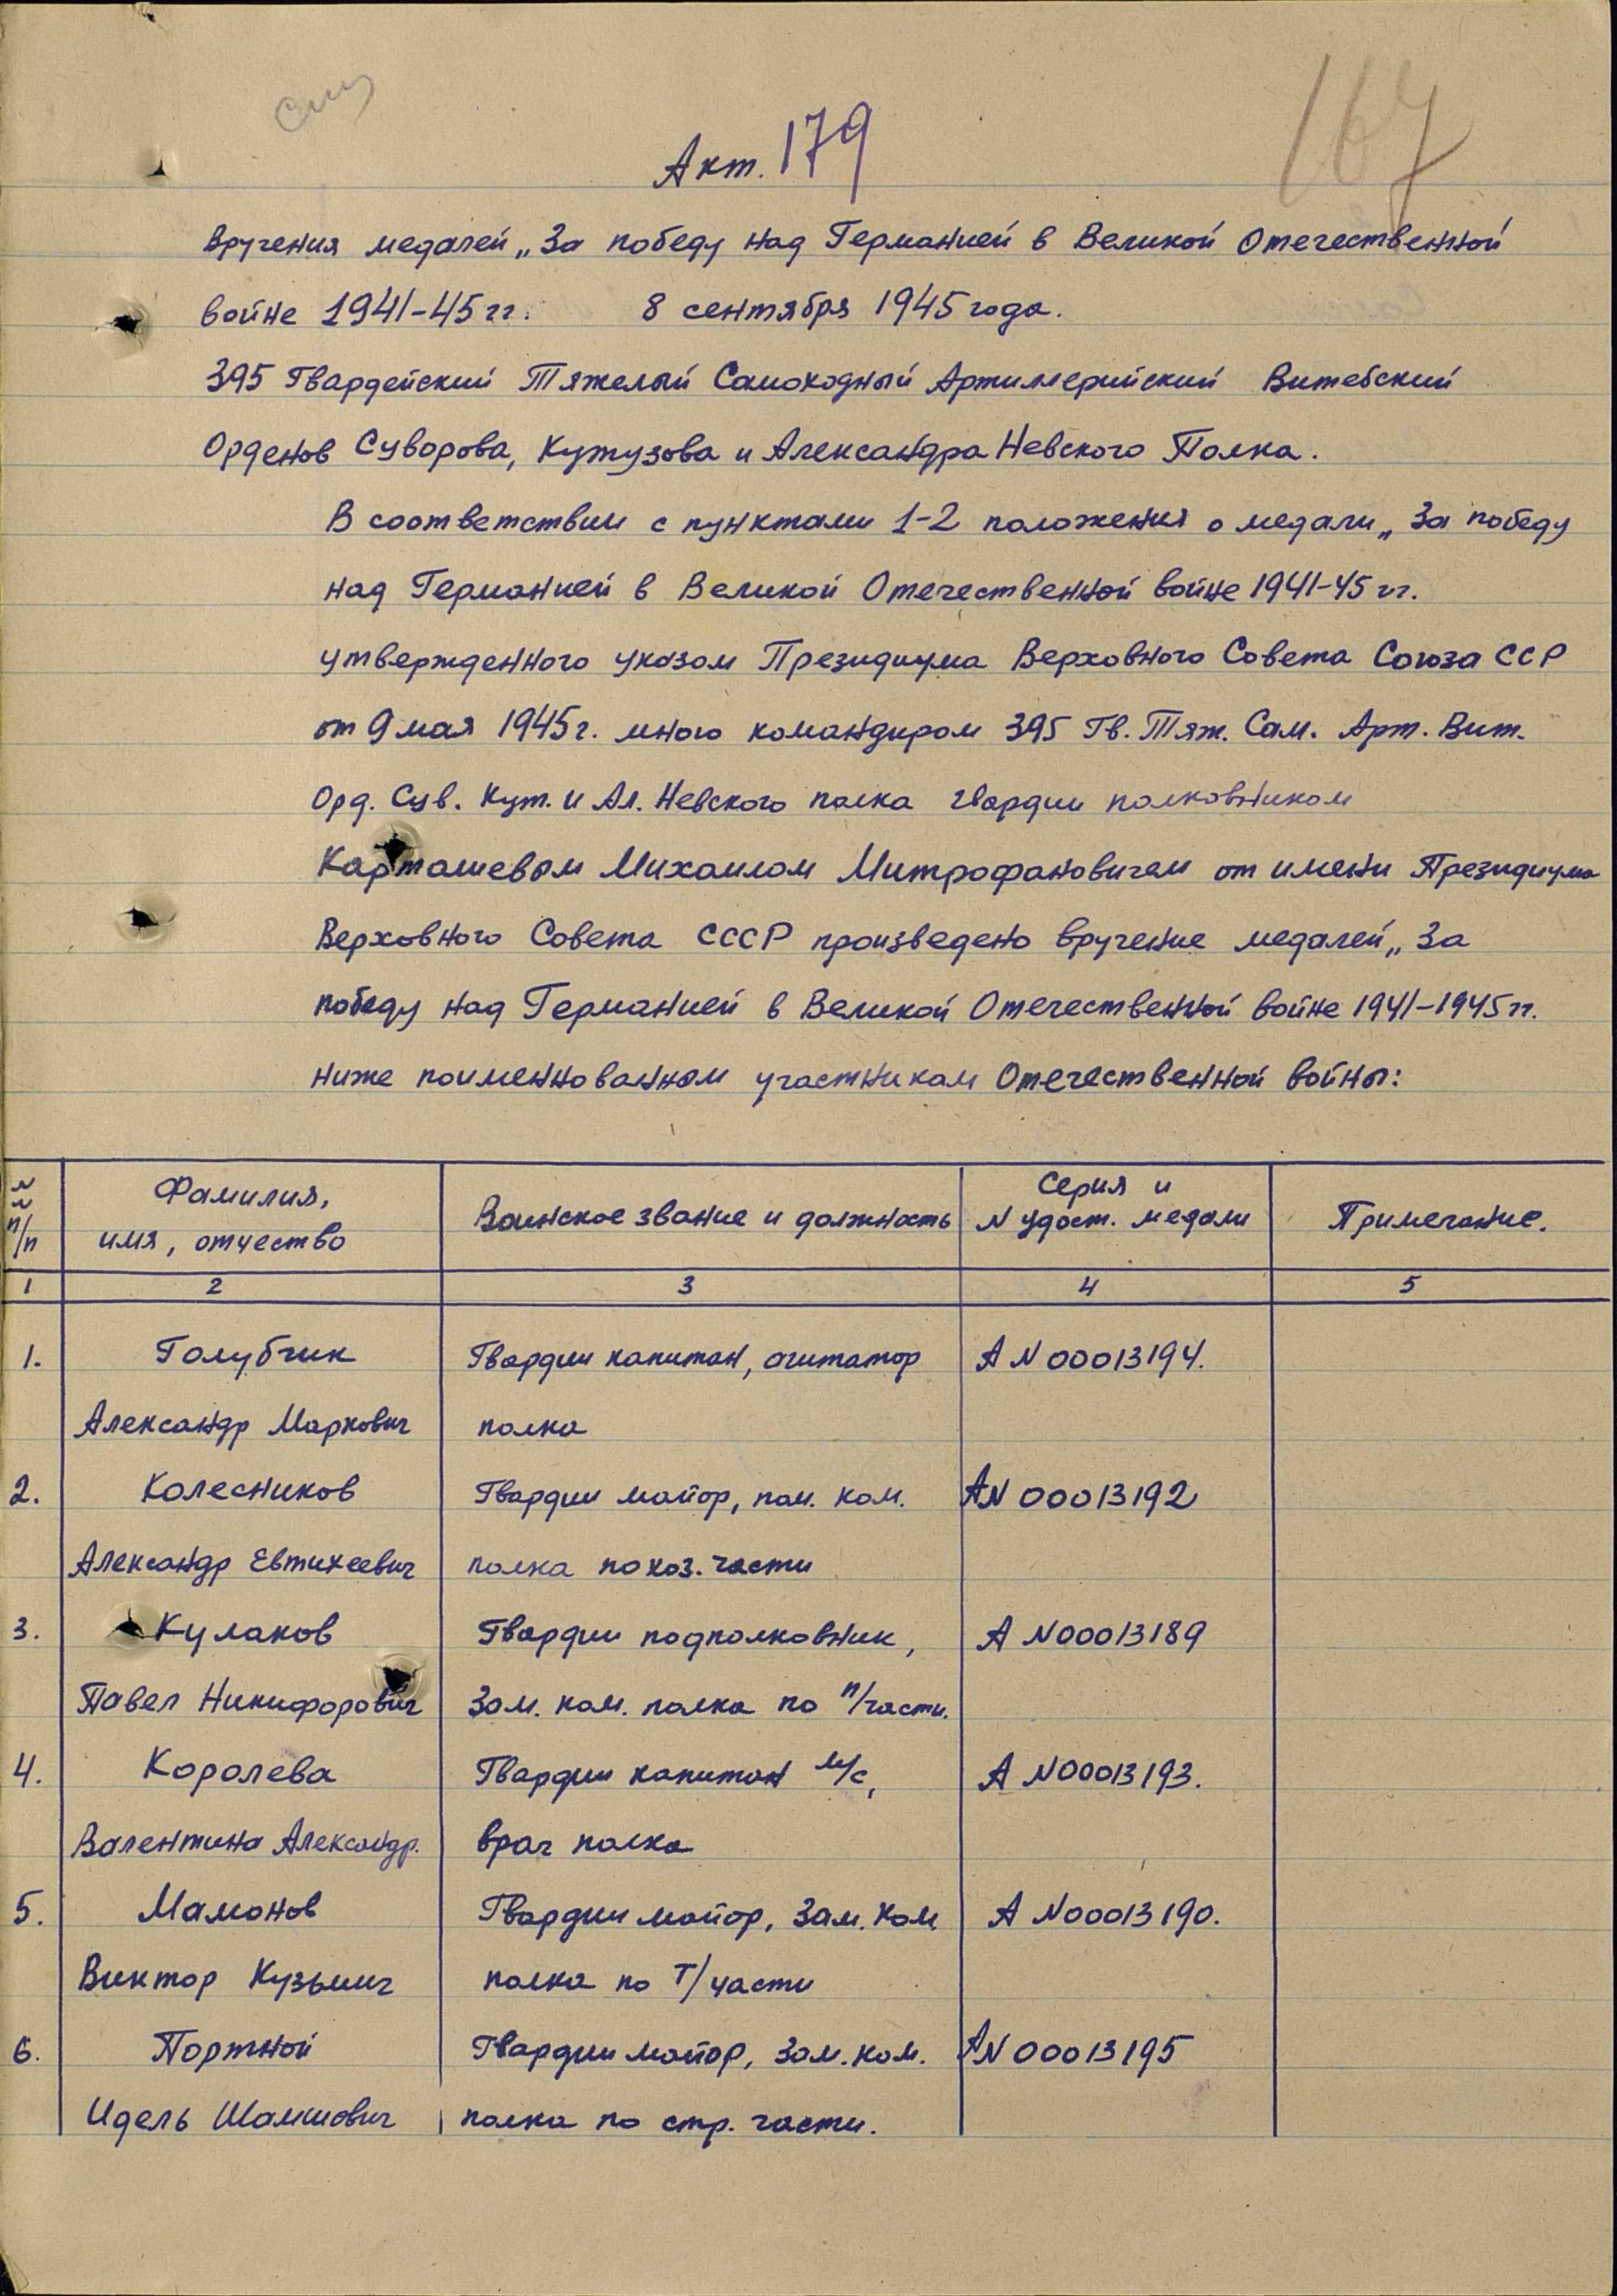 167
Акт. 179
Вручения медалей „За победу над Германией в Великой Отечественной
войне 1941-45 гг. 8 сентября 1945 года.
395 Гвардейский Тяжелый Самоходный Артиллерийский Витебский
Орденов Суворова, Кутузова и Александра Невского Полка.
В соответствии с пунктами 1-2 положения о медали „За победу
над Германией в Великой Отечественной войне 1941-45 гг.
утвержденного указом Президиума Верховного Совета Союза ССР
от 9 мая 1945 г. мною командиром 395 Гв. Тяж. Сам. Арт. Вит.
Орд. Сув. Кут. и Ал. Невского полка гвардии полковником
Карташевым Михаилом Митрофановичем от имени Президиума
Верховного Совета СССР произведено вручение медалей „За
победу над Германией в Великой Отечественной войне 1941-1945 гг.
ниже поименнованным участникам Отечественной войны:
N N п/п | Фамилия, имя, отчество | Воинское звание и должность | Серия и N удост. медали | Примечание.
1 2 3 4 5
1. Голубчик Гвардии капитан, агитатор А N 00013194.
Александр Маркович полка
2. Колесников Гвардии майор, пом. ком. А N 00013192
Александр Евтихеевич полка по хоз. части
3. Кулаков Гвардии подполковник, А N 00013189
Павел Никифорович Зам. ком. полка по п/части.
4. Королева Гвардии капитан м/с, А N 00013193.
Валентина Александр. врач полка
5. Мамонов Гвардии майор, Зам. ком. А N 00013190.
Виктор Кузьмич полка по т/части
6. Портной Гвардии майор, зам. ком. А N 00013195
Идель Шамшович полка по стр. части.